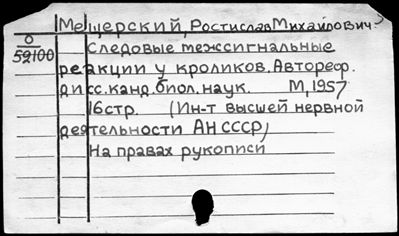 Мещерский, Ростислав Михайлович.
0
59100
Следовые межсигнальные
реакции у кроликов. Автореф.
дисс. канд. биол. наук. М, 1957
16стр. (Ин-т высшей нервной
деятельности АН СССР)
На правах рукописи